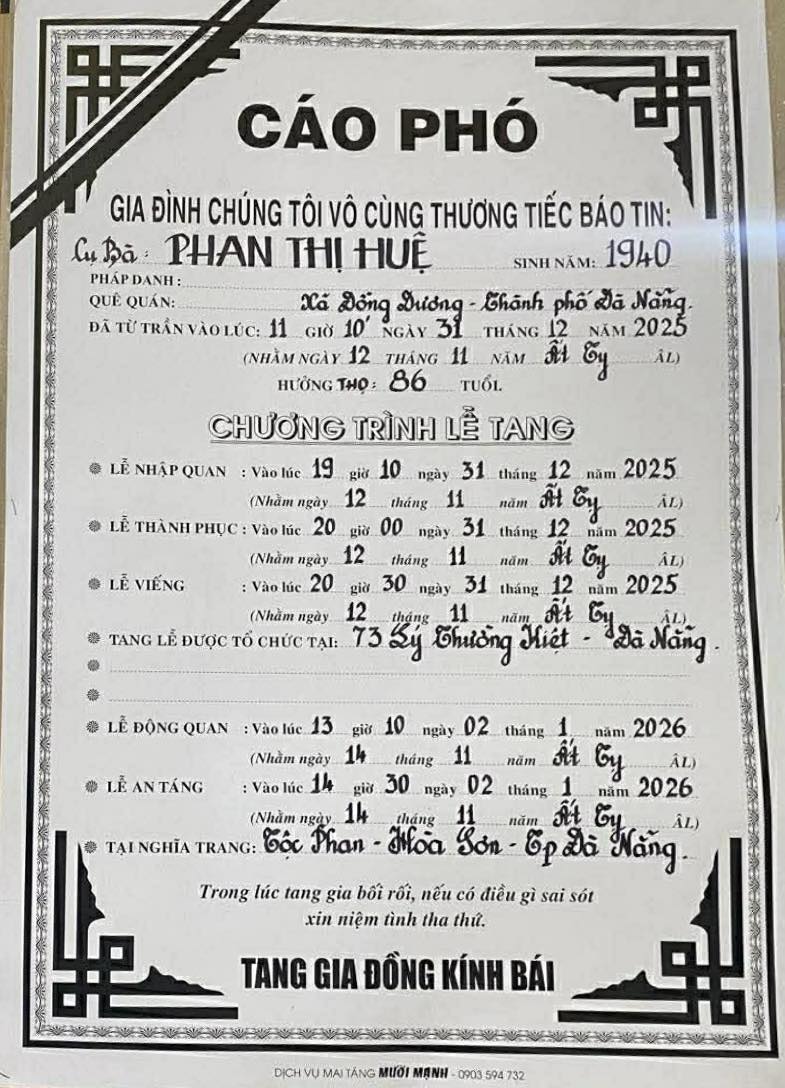 CÁO PHÓ
GIA ĐÌNH CHÚNG TÔI VÔ CÙNG THƯƠNG TIẾC BÁO TIN:
Cụ Bà: PHAN THỊ HUỆ SINH NĂM: 1940
PHÁP DANH:
QUÊ QUÁN: Xã Đồng Dương - Thành phố Đà Nẵng.
ĐÃ TỪ TRẦN VÀO LÚC: 11 GIỜ 10' NGÀY 31 THÁNG 12 NĂM 2025
(NHẰM NGÀY 12 THÁNG 11 NĂM Ất Tỵ ÂL)
HƯỞNG THỌ: 86 TUỔI.
CHƯƠNG TRÌNH LỄ TANG
LỄ NHẬP QUAN : Vào lúc 19 giờ 10 ngày 31 tháng 12 năm 2025
(Nhằm ngày 12 tháng 11 năm Ất Tỵ ÂL)
LỄ THÀNH PHỤC : Vào lúc 20 giờ 00 ngày 31 tháng 12 năm 2025
(Nhằm ngày 12 tháng 11 năm Ất Tỵ ÂL)
LỄ VIẾNG : Vào lúc 20 giờ 30 ngày 31 tháng 12 năm 2025
(Nhằm ngày 12 tháng 11 năm Ất Tỵ ÂL)
TANG LỄ ĐƯỢC TỔ CHỨC TẠI: 73 Lý Thường Kiệt - Đà Nẵng.
LỄ ĐỘNG QUAN : Vào lúc 13 giờ 10 ngày 02 tháng 1 năm 2026
(Nhằm ngày 14 tháng 11 năm Ất Tỵ ÂL)
LỄ AN TÁNG : Vào lúc 14 giờ 30 ngày 02 tháng 1 năm 2026
(Nhằm ngày 14 tháng 11 năm Ất Tỵ ÂL)
TẠI NGHĨA TRANG: Tộc Phan - Hòa Sơn - Tp Đà Nẵng.
Trong lúc tang gia bối rối, nếu có điều gì sai sót
xin niệm tình tha thứ.
TANG GIA ĐỒNG KÍNH BÁI
DỊCH VỤ MAI TÁNG MƯỜI MẠNH - 0903 594 732